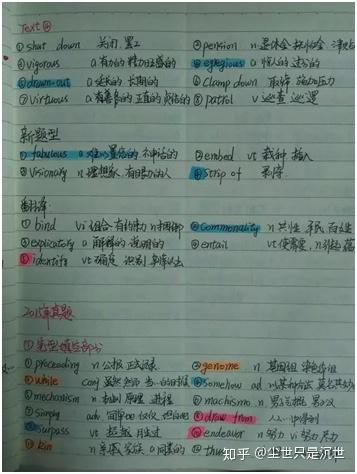 Text 4
① shut down 关闭,罢工 ② pension n 退休金
③ vigorous a 有力的 精力旺盛的 ④ egregious a 惊人的 过分的
⑤ drawn-out a 延长的 长期的 ⑥ clamp down 取缔 施加压力
⑦ virtuous a 有善良的 正直的 ⑧ patrol v 巡查 巡逻
新题型
① fabulous a 难以置信的 神话的 ② embed vt 栽种 插入
③ visionary n 理想家,有眼力的人 ④ strip of 剥夺
翻译
① bind vi 组合 有约束力 n 捆绑 ② commonality n 共性 平民 百姓
③ explicatory a 解释的 说明的 ④ entail vt 使需要
⑤ identify vt 确定 识别
2015年真题
① 完型填空部分
① proceeding n 公报 正式记录 genome n 基因组 染色体组
② while conj 虽然 somehow ad
③ mechanism n 机制 原理 进程 machismo n 男子气概 男子汉
simply ad 简单地 仅仅 draw from 从…中得到
surpass vt 超越 胜过 endeavor n 努力 vi 努力 尽力
kin n 亲戚 a 同类的
知乎 @尘世只是沉世